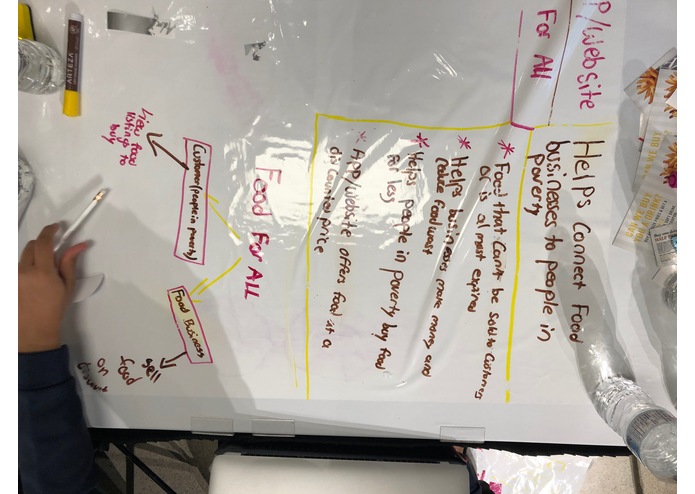 P/website
For All
Helps Connect Food
businesses to people in
poverty
* Food that can't be sold to Customers
or is almost expired
* Helps businesses make money and
reduce food waste
* Helps people in poverty buy food
for less
* App/website offers food at a
discounted price
Food For ALL
Customer (people in poverty)
View food
listings to
buy
Food Business
sell
food
on
discount
ARTEZA